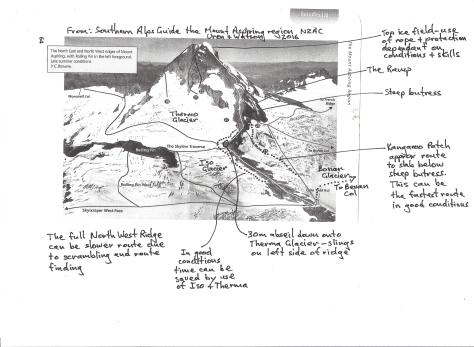 From: Southern Alps Guide the Mount Aspiring region NZAC
Uren & Watson 2016
The North East and North West ridges of Mount
Aspiring, with Rolling Pin in the left foreground.
Late summer conditions
Top ice field - use
of rope & protection
dependant on
conditions & skills
The Ramp
Steep butress
Kangaroo Patch
approx route
to slab below
steep butress.
This can be
the fastest route
in good conditions
Thermo
Glacier
The Skyline Traverse
Iso
Glacier
Rolling Pin
Rolling Pin West Face
Skyscraper West Face
Bonar
Glacier
To Bevan
Col
The full North West Ridge
can be slower route due
to scrambling and route
finding
In good
conditions
time can be
saved by use
of Iso & Therma
30m abseil down onto
Therma Glacier - slings
on left side of ridge